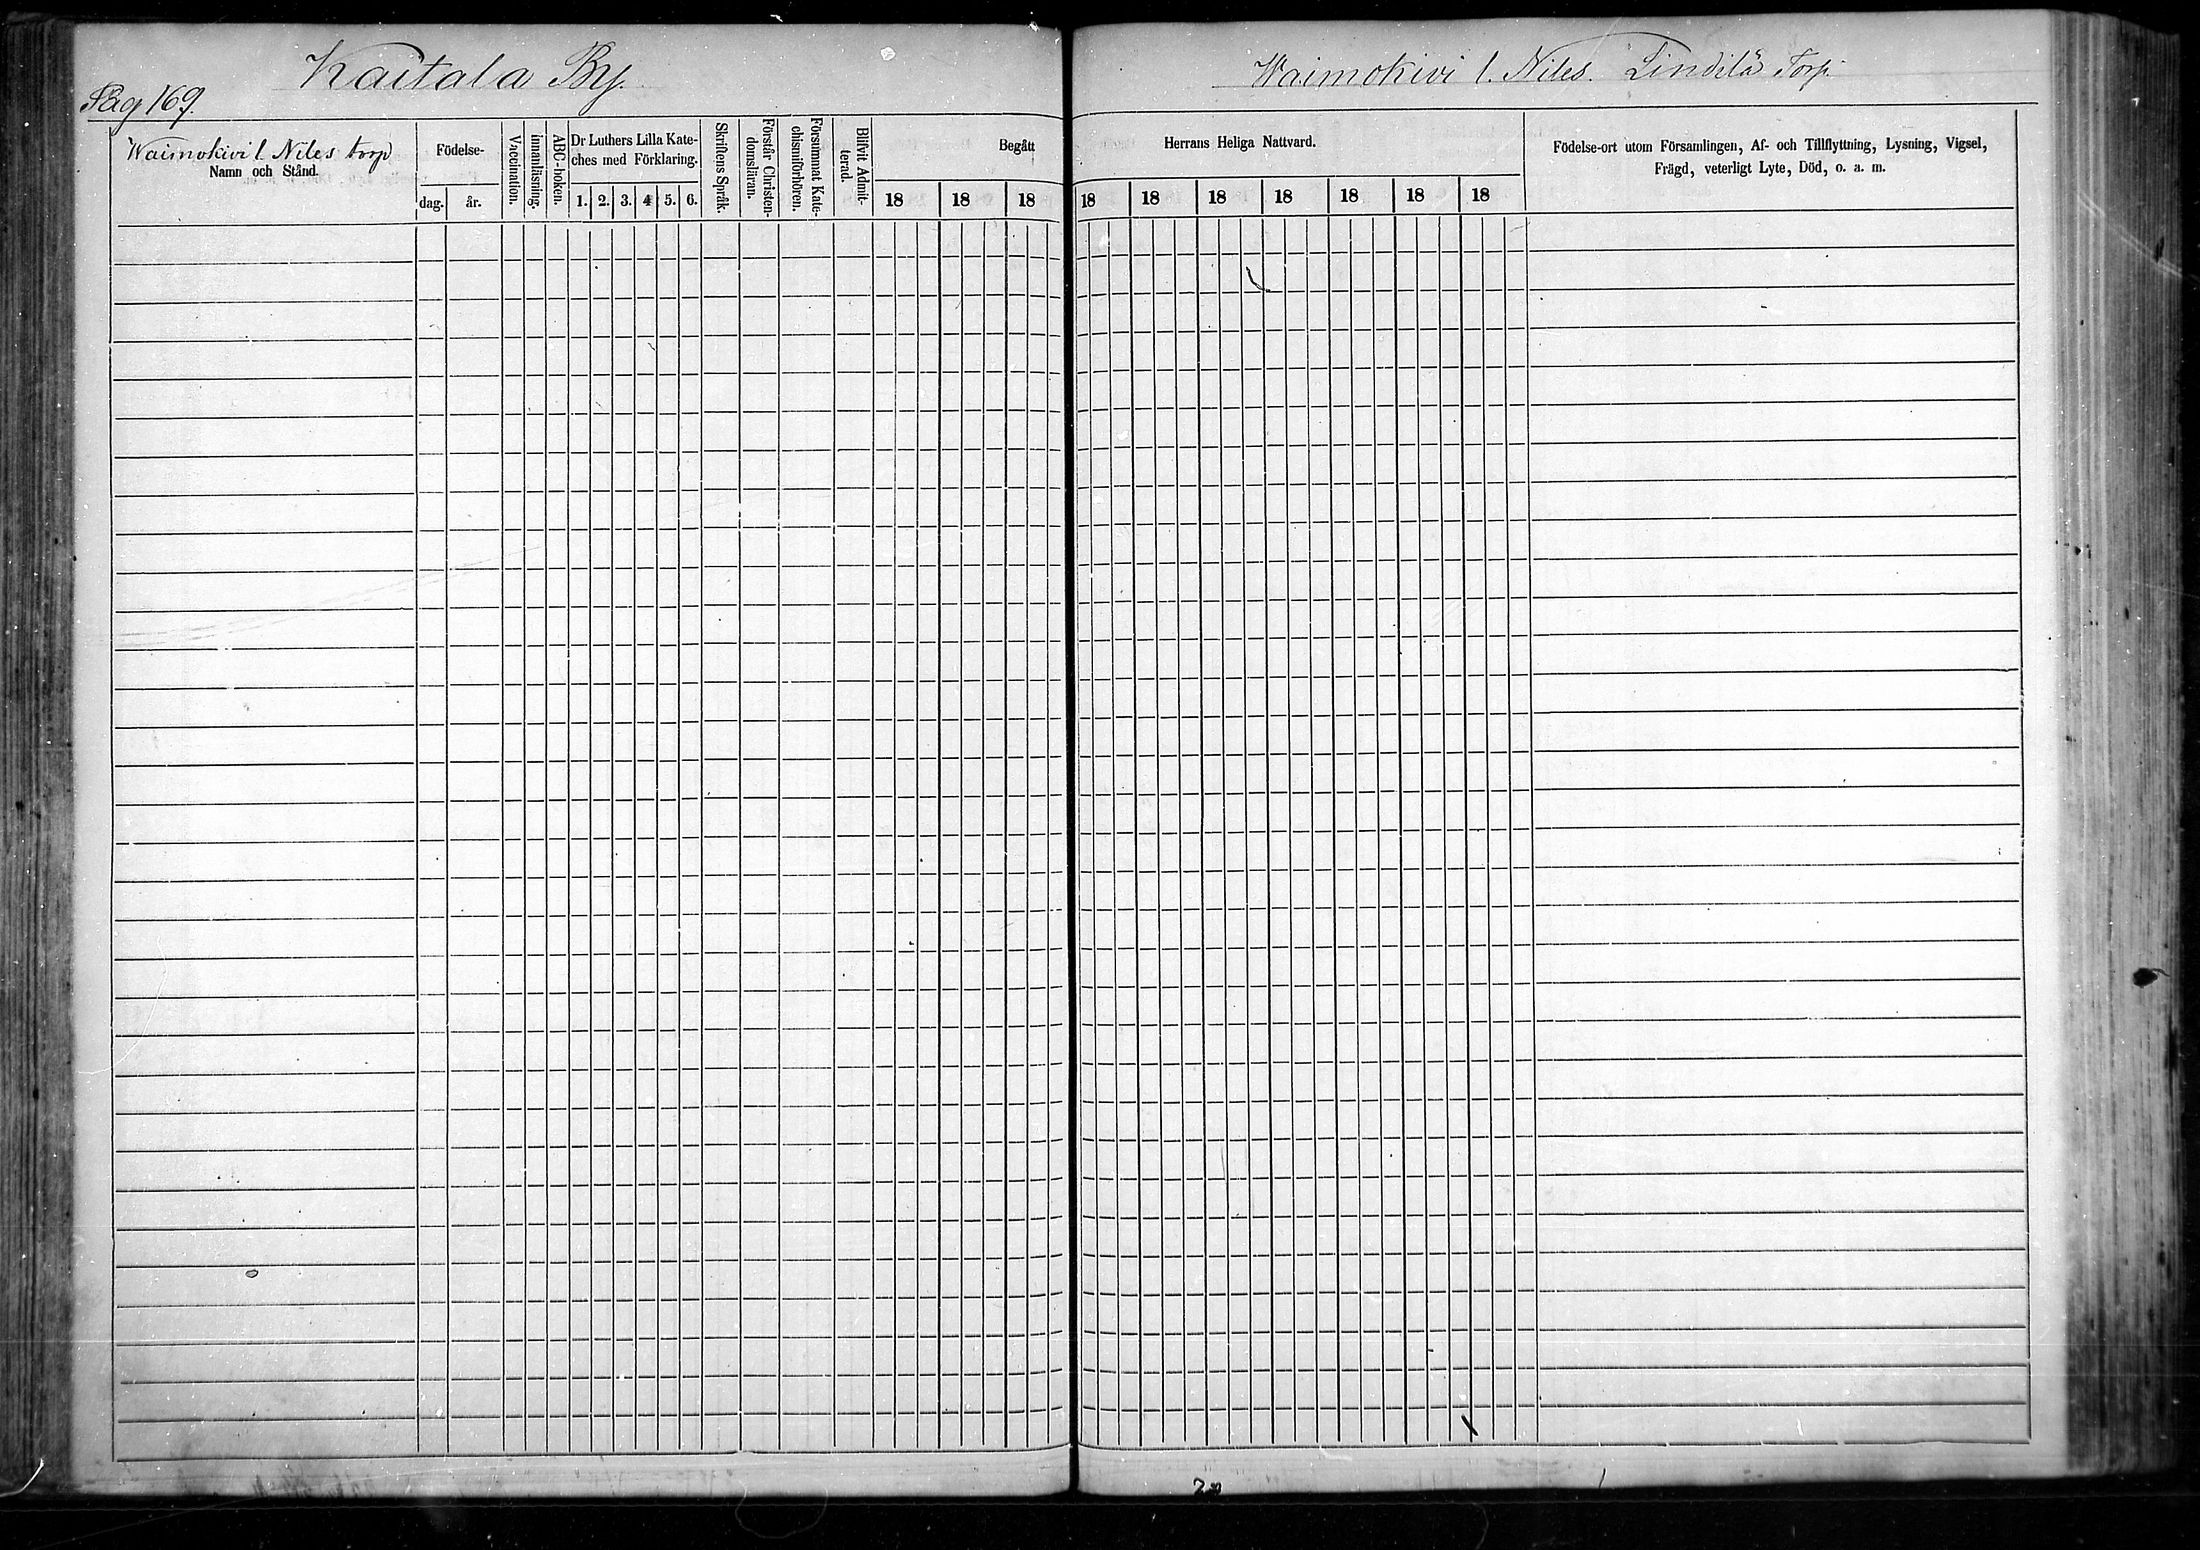 Kaitala By.
Waimokivi l. Niles. Lindilä Torp.
Pag 169.
Waimokivi l. Niles torp
Namn och Stånd.
Födelse-
dag. år.
Vaccination.
innanläsning.
ABC-boken.
Dr Luthers Lilla Kate-
ches med Förklaring.
1. 2. 3. 4 5. 6.
Skriftens Språk.
Förstår Christen-
domsläran.
Försummat Kate-
chismiförhören.
Blifvit Admit-
terad.
Begått
18 18 18
Herrans Heliga Nattvard.
18 18 18 18 18 18 18
Födelse-ort utom Församlingen, Af- och Tillflyttning, Lysning, Vigsel,
Frägd, veterligt Lyte, Död, o. a. m.